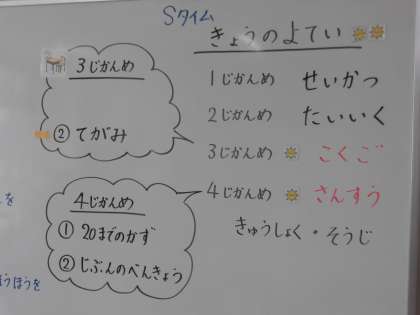 Sタイム
きょうのよてい
3じかんめ
② てがみ
4じかんめ
① 20までのかず
② じぶんのべんきょう
1じかんめ せいかつ
2じかんめ たいいく
3じかんめ こくご
4じかんめ さんすう
きゅうしょく・そうじ
を
ほうほうを